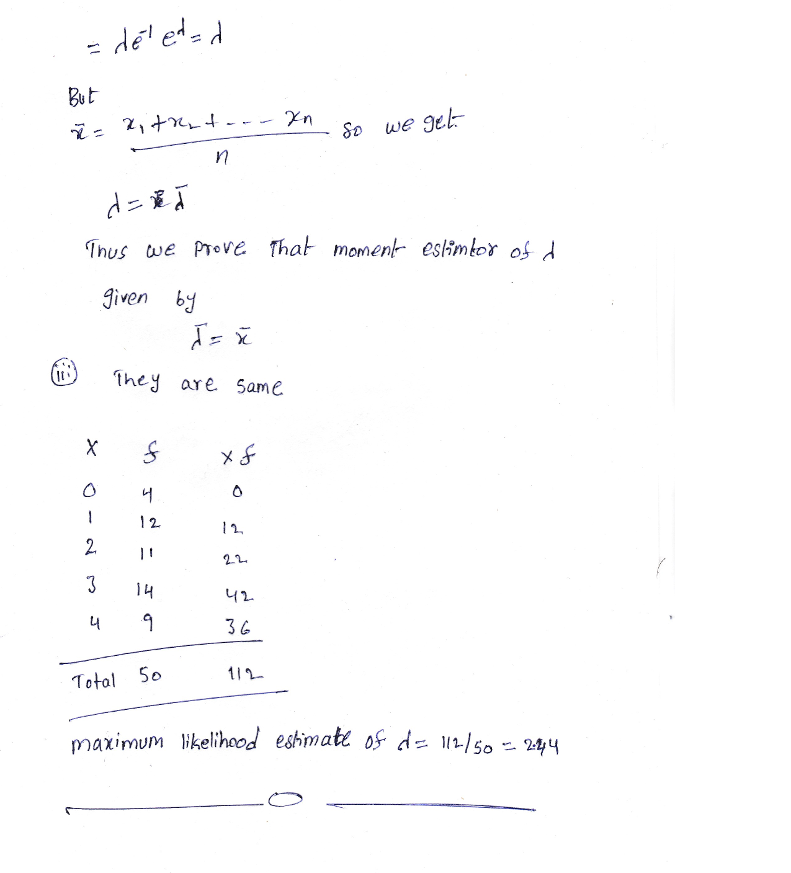 = de⁻¹ e^d = d
But
x̄ = x₁ + x₂ + - - - xn / n so we get
d = d̄
Thus we prove That moment estimtor of d
given by
d̄ = x̄
(iii) They are same
X f xf
0 4 0
1 12 12
2 11 22
3 14 42
4 9 36
Total 50 112
maximum likelihood estimate of d = 112/50 =